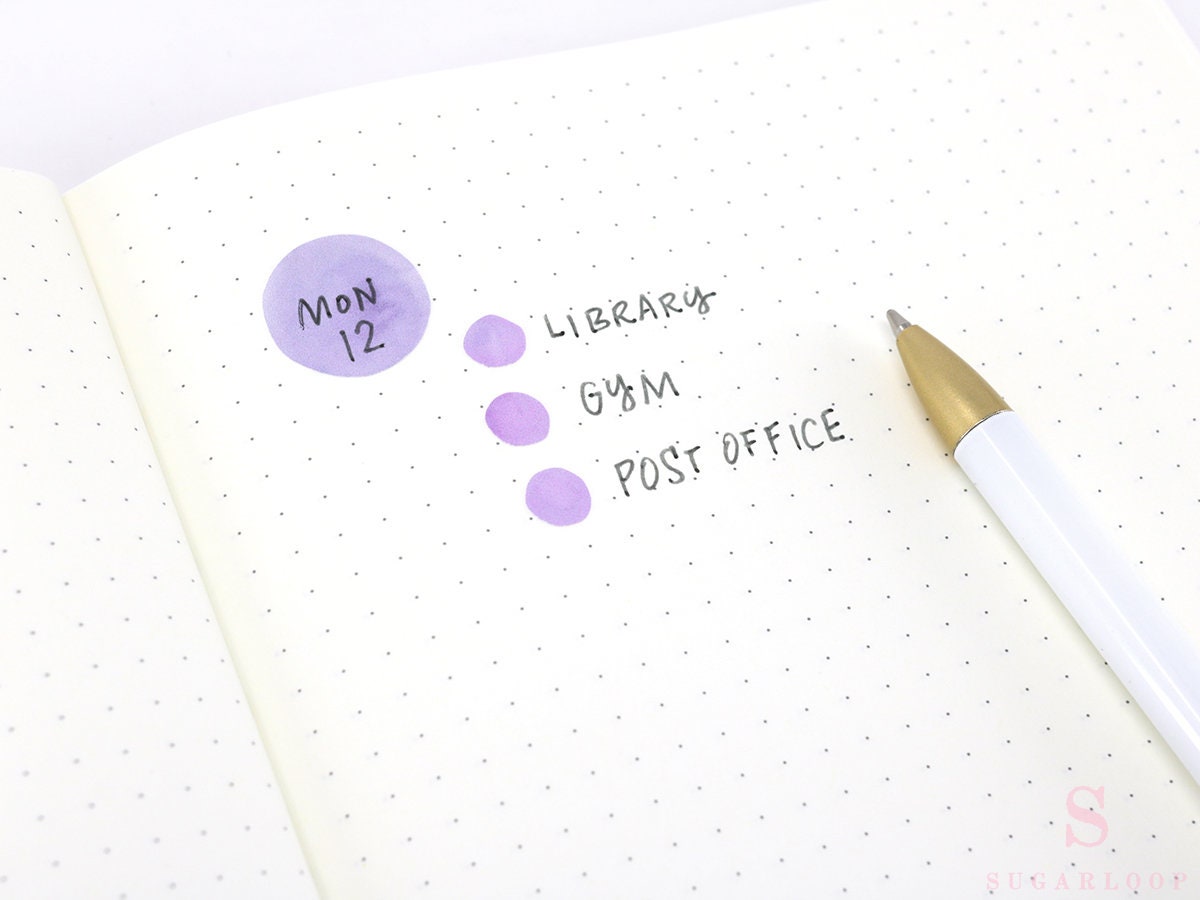 MON
12
LIBRARY
GYM
POST OFFICE
S
SUGARLOOP